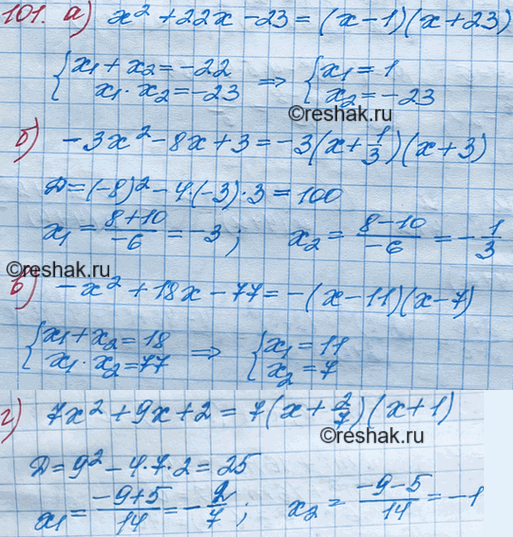 101. а) x² + 22x - 23 = (x - 1)(x + 23)
{ x₁ + x₂ = -22 ⇒ { x₁ = 1
x₁ · x₂ = -23 x₂ = -23
©reshak.ru
б) -3x² - 8x + 3 = -3(x + 1/3)(x + 3)
D = (-8)² - 4·(-3)·3 = 100
x₁ = (8+10)/(-6) = -3; x₂ = (8-10)/(-6) = -1/3
©reshak.ru
в) -x² + 18x - 77 = -(x - 11)(x - 7)
{ x₁ + x₂ = 18 ⇒ { x₁ = 11
x₁ · x₂ = 77 x₂ = 7
г) 7x² + 9x + 2 = 7(x + 2/7)(x + 1)
©reshak.ru
D = 9² - 4·7·2 = 25
x₁ = (-9+5)/14 = -2/7; x₂ = (-9-5)/14 = -1